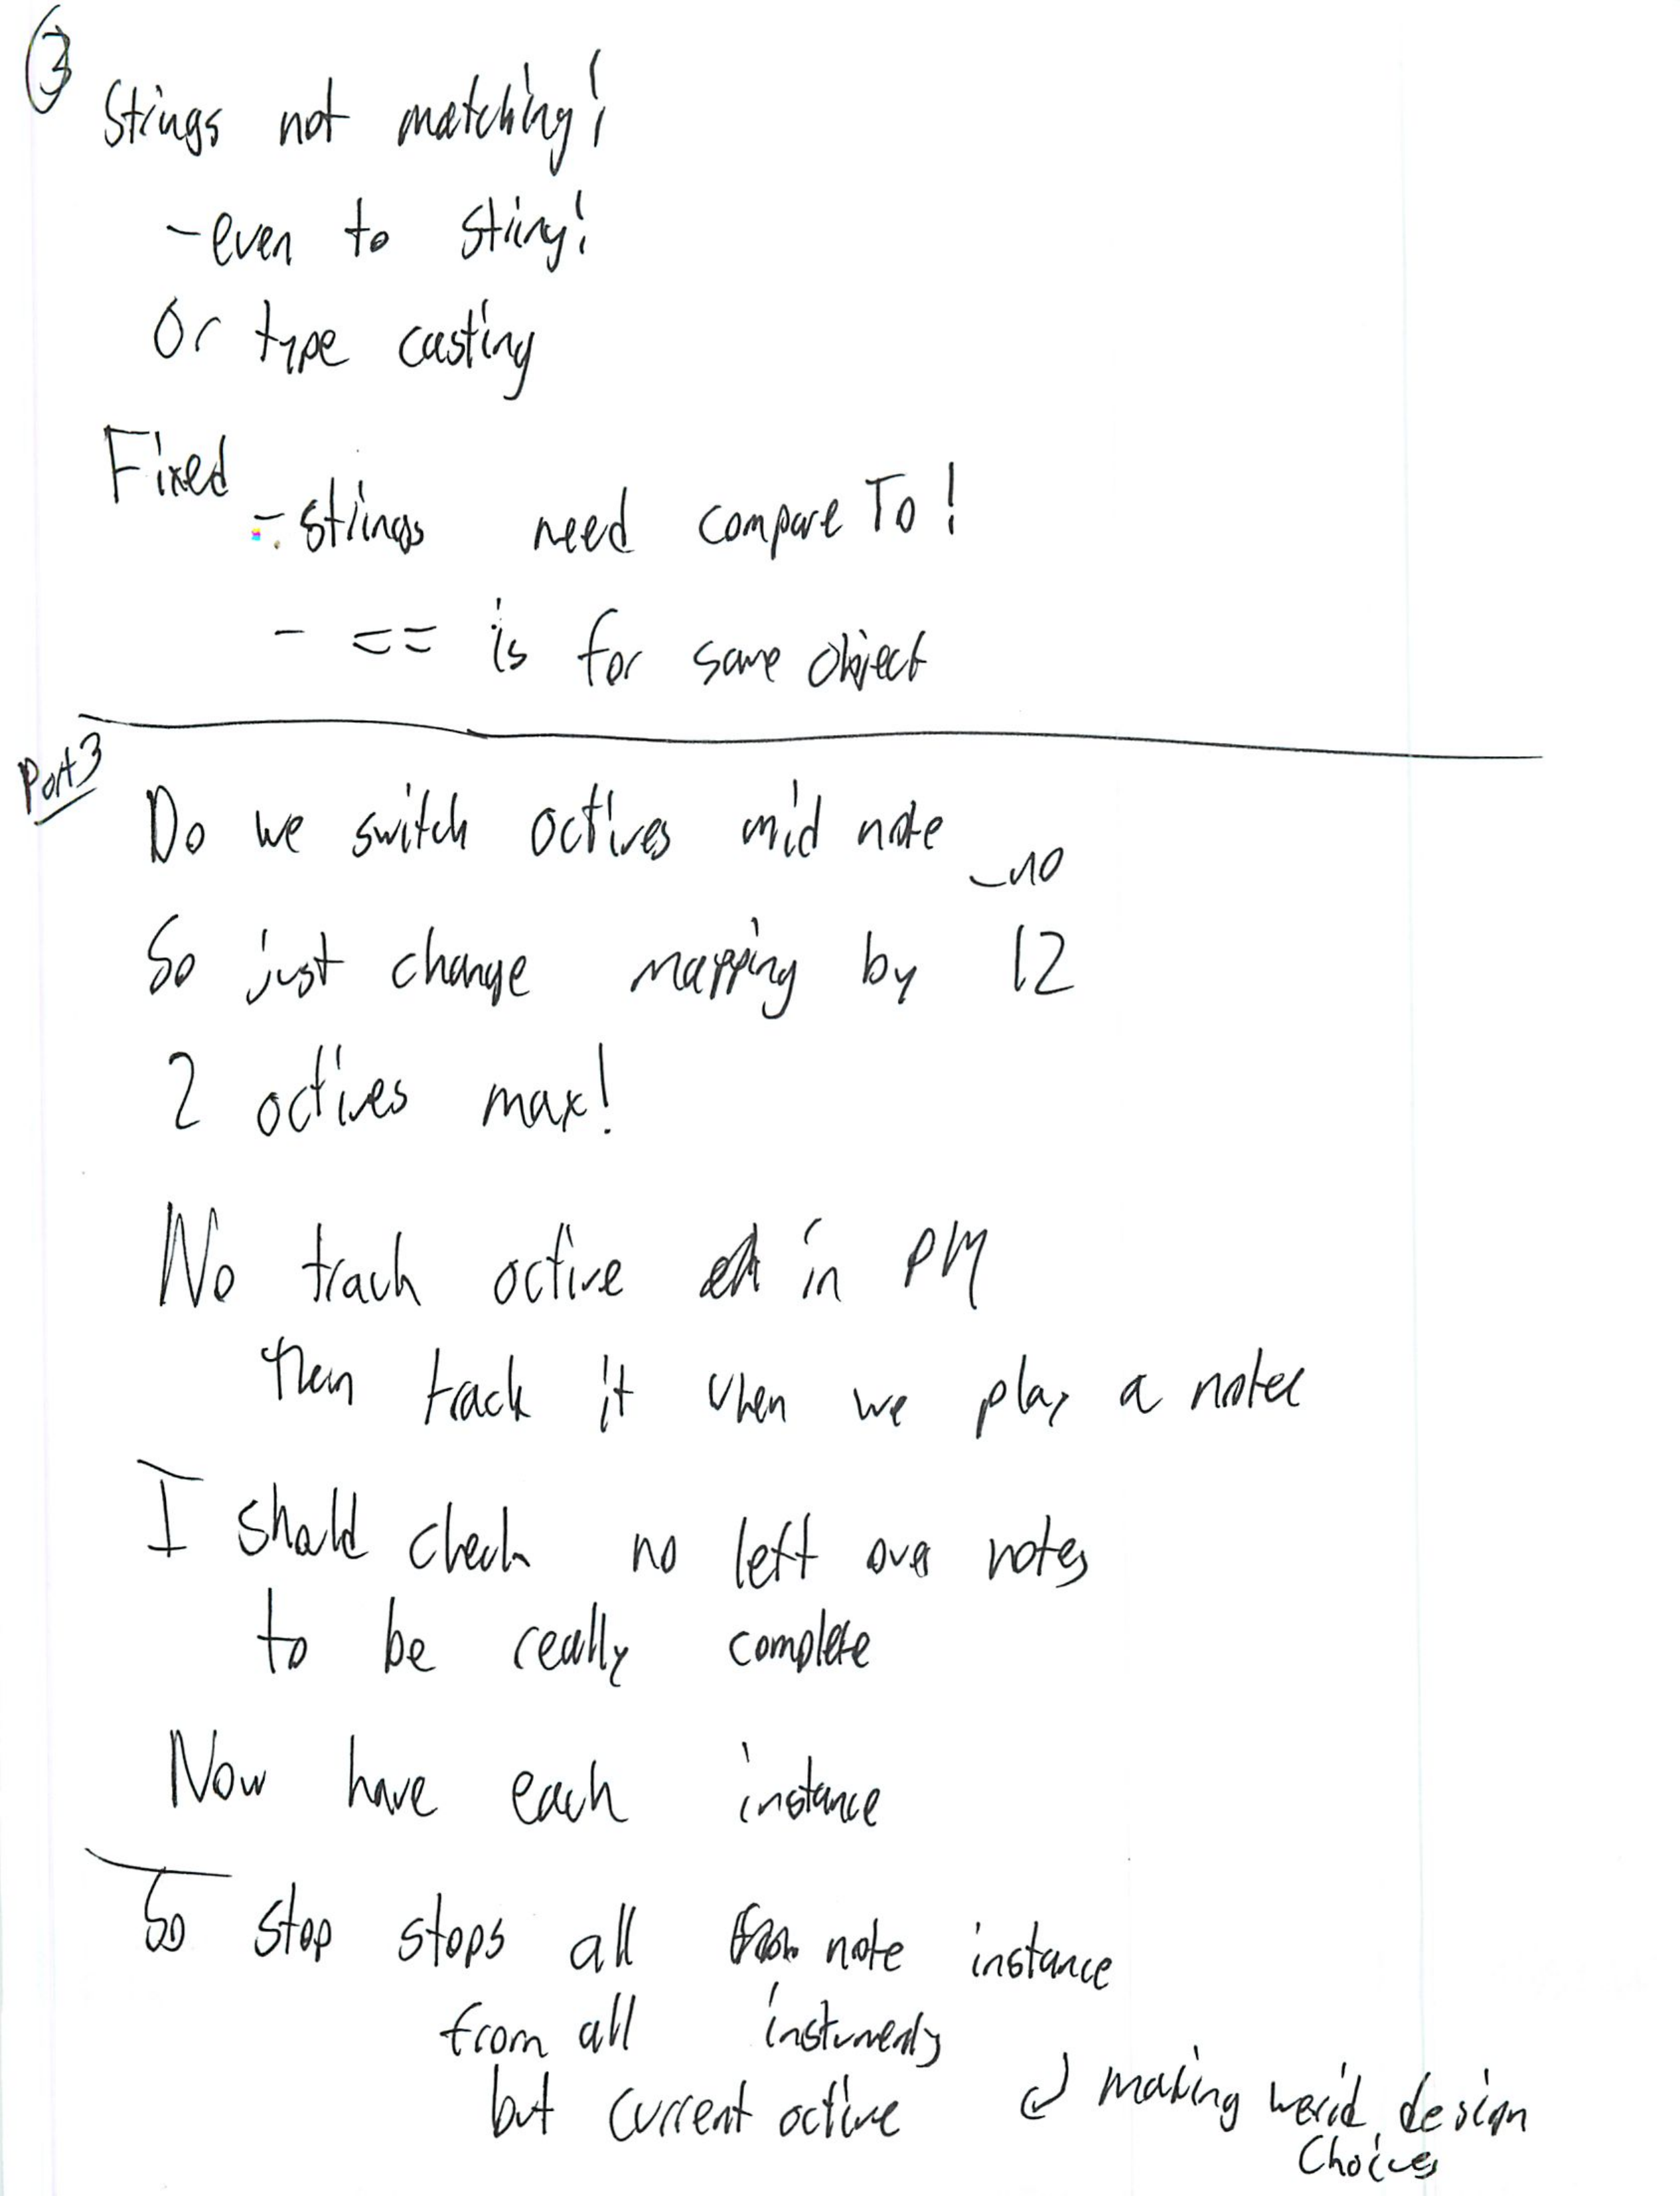 3
Strings not matching!
- even to string!
Or type casting
Fixed
- strings need compareTo!
- == is for same object
Part 3
Do we switch octives mid note
- no
So just change mapping by 12
2 octives max!
No track octive in PM
then track it when we play a note
I should check no left over notes
to be really complete
Now have each instance
So stop stops all note instance
from all instuments
but current octive
making werid design
Choices